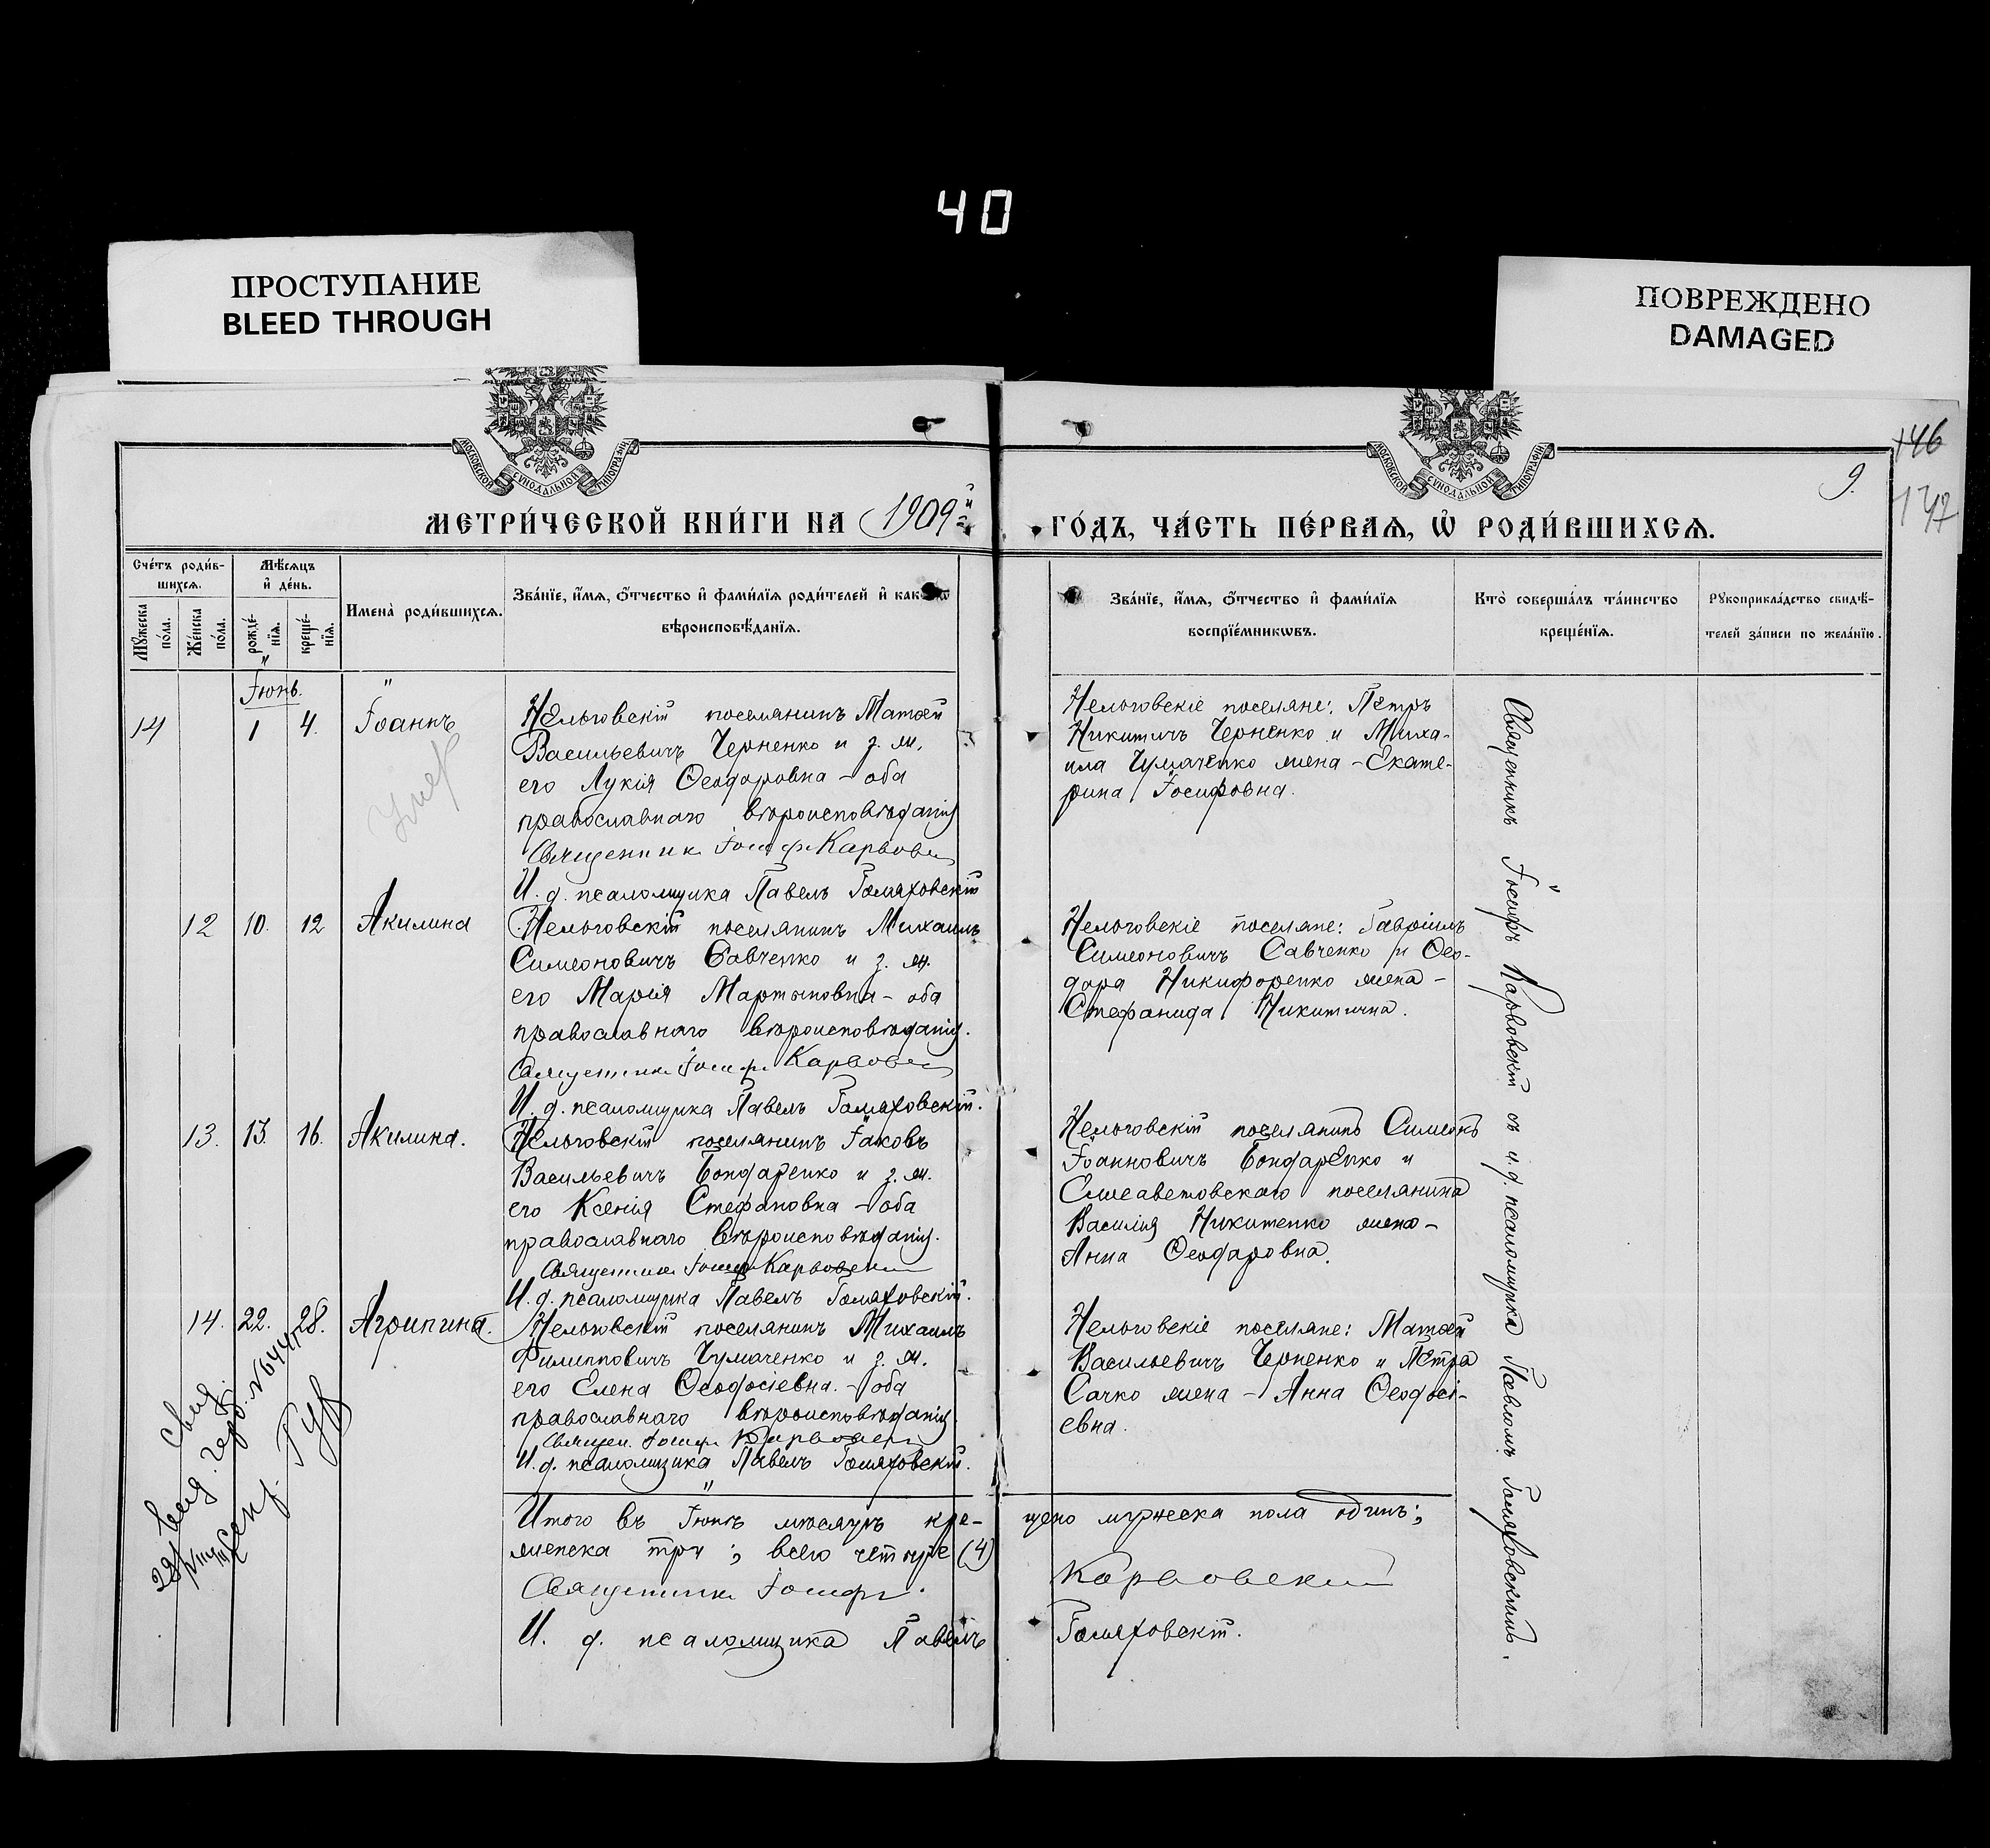 40
ПРОСТУПАНИЕ
BLEED THROUGH
ПОВРЕЖДЕНО
DAMAGED
МОСКОВСКОЙ СѴНОДАЛЬНОЙ ТИПОГРАФІИ
МОСКОВСКОЙ СѴНОДАЛЬНОЙ ТИПОГРАФІИ
146
147
9.
МЕТРИ́ЧЕСКОЙ КНИ́ГИ НА 1909й
ГО́ДЪ, ЧА́СТЬ ПЕ́РВАѦ, Ѡ҆ РОДИ́ВШИХСѦ.
Сче́тъ роди́в-
шихсѧ.
Мꙋжеска по́ла.
Же́нска по́ла.
Мѣ́сѧцъ
и҆ де́нь.
рожде́-
нїѧ.
креще́-
нїѧ.
Имена̀ роди́вшихсѧ.
Зва́нїе, и҆́мѧ, ѻ҆́тчество и҆ фами́лїѧ роди́телей и҆ како́гѡ
вѣроисповѣ́данїѧ.
Зва́нїе, и҆́мѧ, ѻ҆́тчество и҆ фами́лїѧ
воспрїе́мникѡвъ.
Кто̀ соверша́лъ та́инство
креще́нїѧ.
Рꙋкоприкла́дство свидѣ́-
телей за́писи по жела́нїю.
Іюнь.
14 1 4. Іоаннъ
Нельговскій поселянинъ Матѳей
Васильевичъ Черненко и з. ж.
его Лукія Ѳеодоровна – оба
православнаго вѣроисповѣданія
Священникъ Іосифъ Карвовскій
И. д. псаломщика Павелъ Голяховскій
Нельговскіе поселяне: Петръ
Никитичъ Черненко и Миха-
ила Чумаченко жена – Екате-
рина Іосифовна.
12 10. 12 Акилина
Нельговскій поселянинъ Михаилъ
Симеоновичъ Савченко и з. ж.
его Марія Мартыновна – оба
православнаго вѣроисповѣданія.
Священникъ Іосифъ Карвовскій
И. д. псаломщика Павелъ Голяховскій.
Нельговскіе поселяне: Гавріилъ
Симеоновичъ Савченко и Ѳео-
дора Никифоренко жена –
Стефанида Никитична.
13. 13. 16. Акилина.
Нельговскій поселянинъ Іаковъ
Васильевичъ Бондаренко и з. ж.
его Ксенія Стефановна – оба
православнаго вѣроисповѣданія.
Священникъ Іосифъ Карвовскій
И. д. псаломщика Павелъ Голяховскій.
Нельговскій поселянинъ Симеонъ
Іоанновичъ Бондаренко и
Елисаветовскаго поселянина
Василія Никитенко жена –
Анна Ѳеодоровна.
14. 22. 28. Агрипина.
Нельговскій поселянинъ Михаилъ
Филипповичъ Чумаченко и з. ж.
его Елена Ѳеодосіевна. – оба
православнаго вѣроисповѣданія.
Священ. Іосифъ Карвовскій
И. д. псаломщика Павелъ Голяховскій.
Нельговскіе поселяне: Матѳей
Васильевичъ Черненко и Петра
Сачко жена – Анна Ѳеодосі-
евна.
Священникъ Іосифъ Карвовскій съ и.д. псаломщика Павломъ Голяховскимъ.
Итого въ Іюнѣ мѣсяцѣ кре-
щено мужеска пола одинъ;
женска три; всего четыре (4)
Священникъ Іосифъ
Карвовскій
И. д. псаломщика Павелъ
Голяховскій.